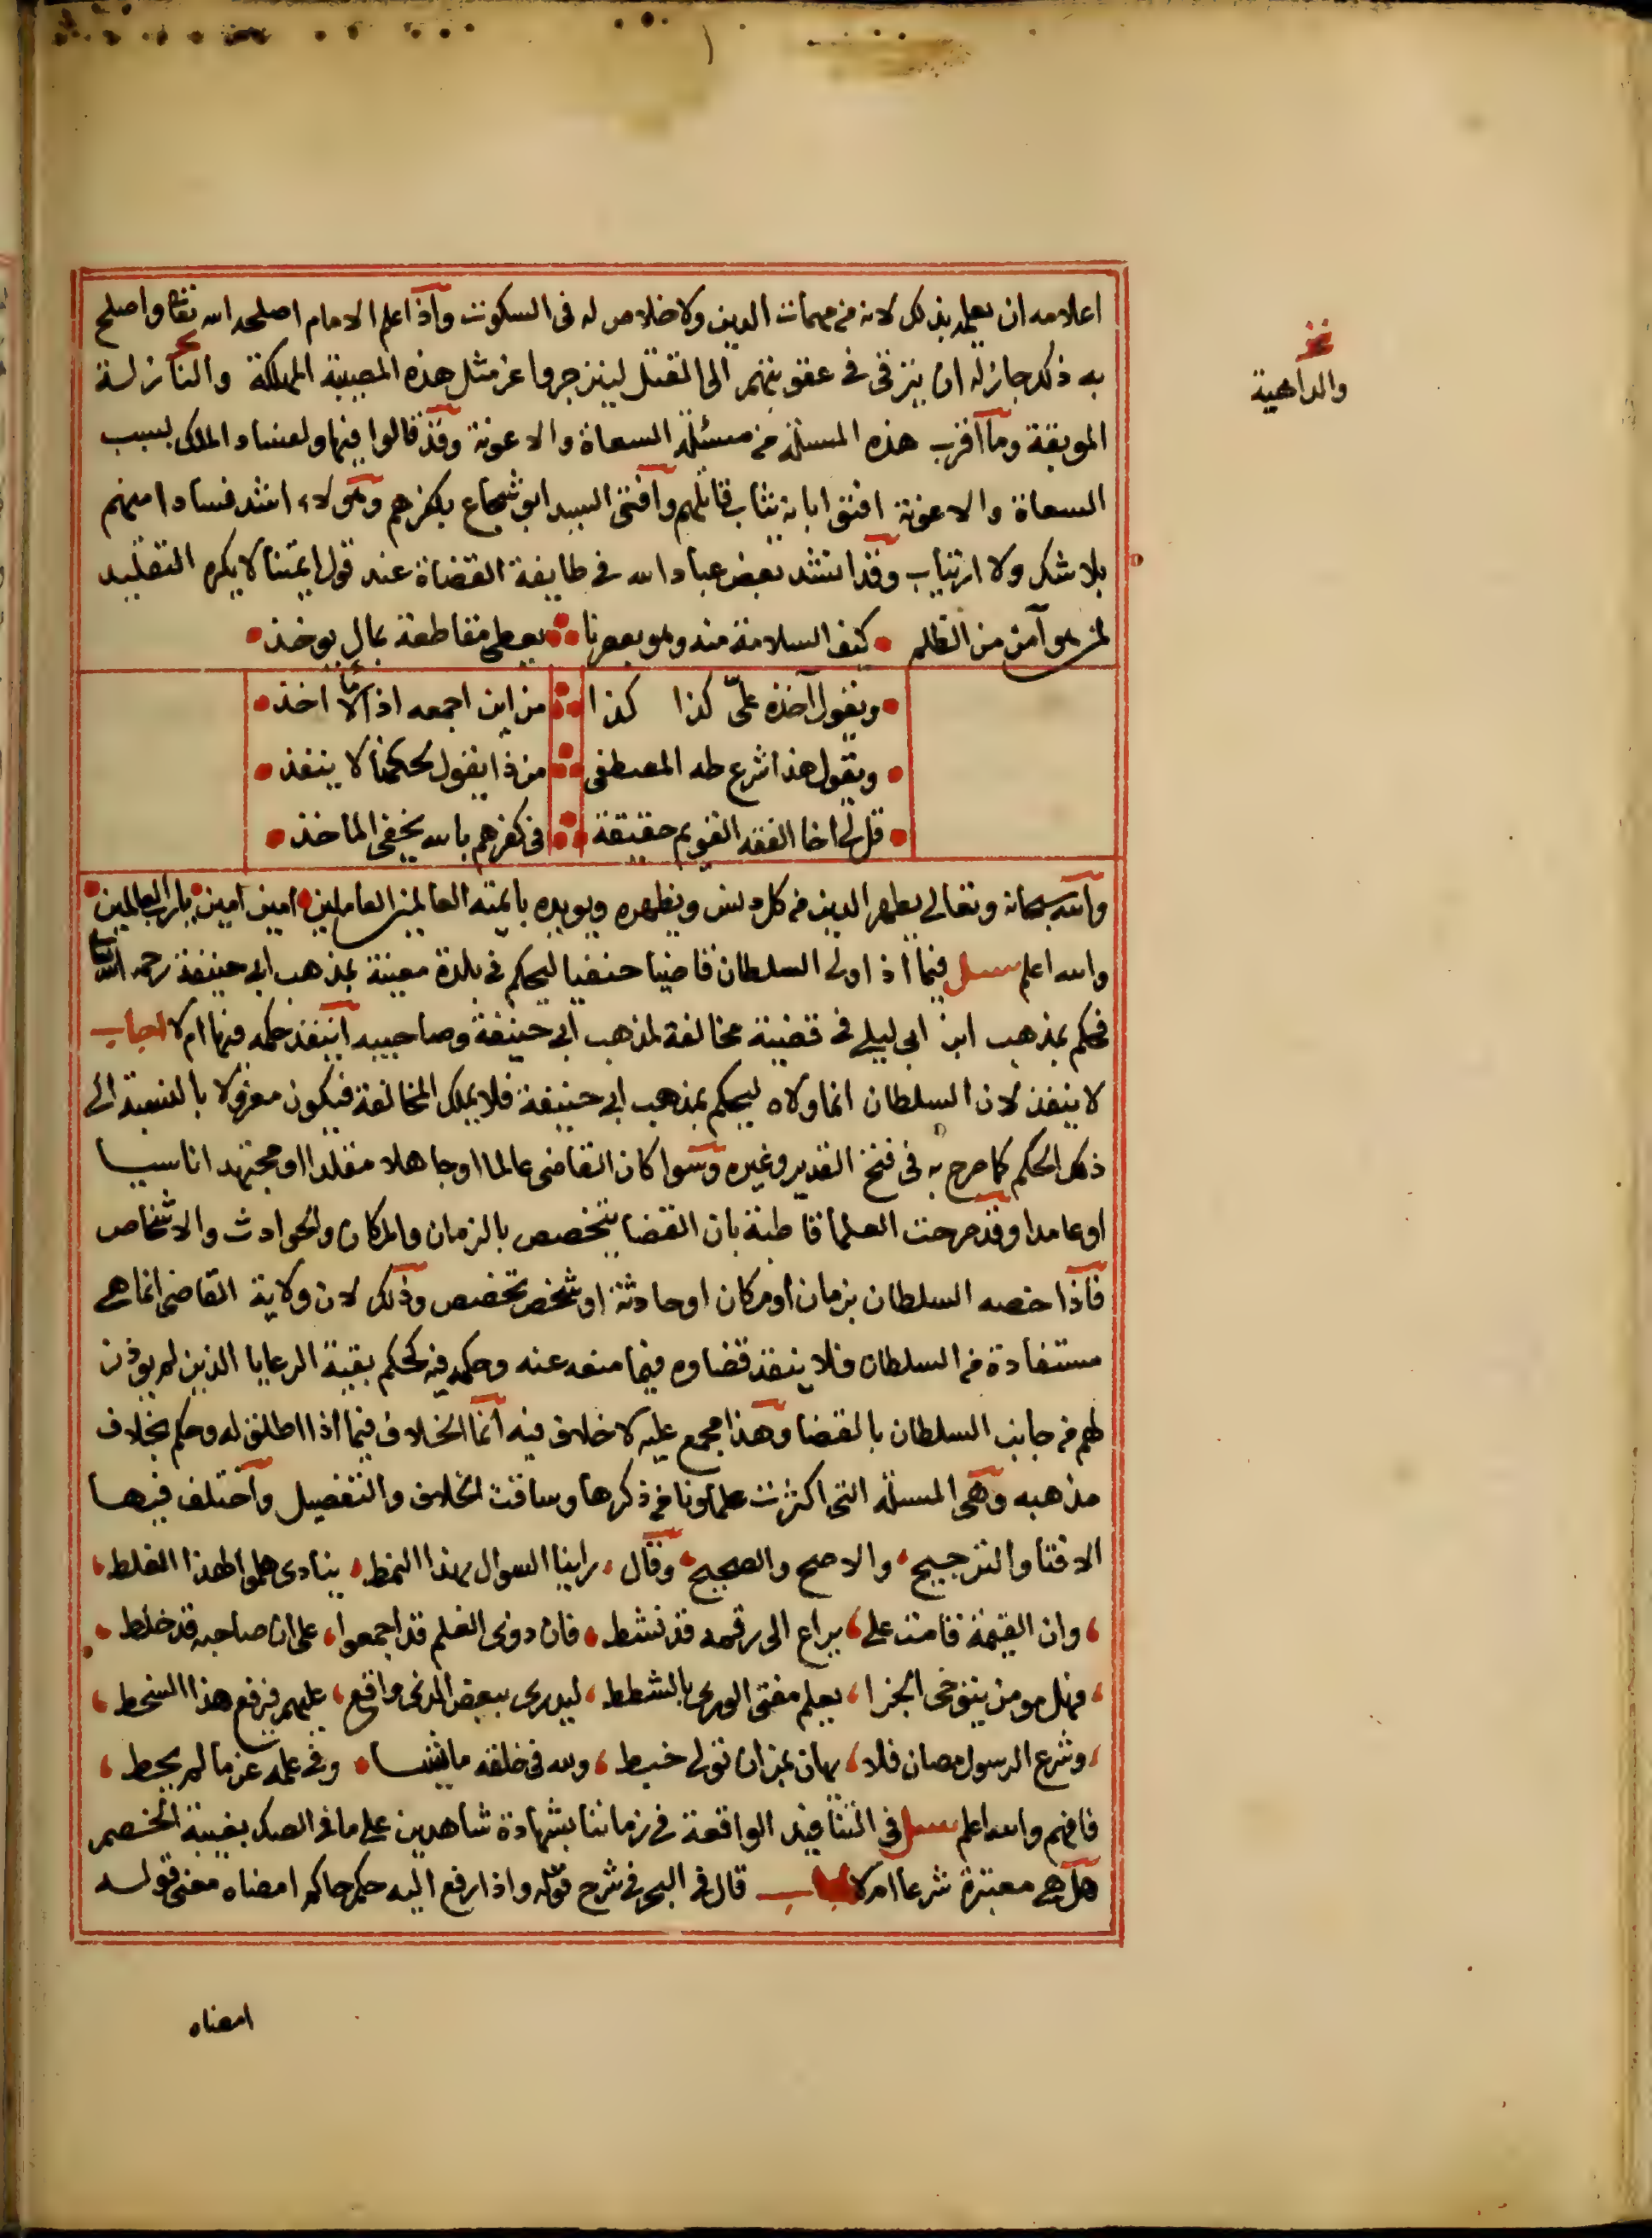 اعلامه ان يعلمه بذلك لانه من مهمات الدين ولا خلاص له فى السكوت واذا علم الامام اصلحه الله تعالى واصلح
به ذلك جاز له ان يترقى فى عقوبتهم الى القتل لينزجروا عن مثل هذه المصيبة المهلكة والنازلة
نخـ
والداهية
الموبقة وما اقرب هذه المسئلة من مسئلة السعاة والاعونة وقد قالوا فيها ولفساد الملك بسبب
السعاة والاعونة افتوا بانه يثاب قاتلهم وافتى السيد ابو شجاع بكفرهم وهولاء اشد فسادا منهم
بلا شك ولا ارتياب وقد انشد بعض عباد الله فى طايفة القضاة عند قول ايمتنا لا يكره التقليد
لمن هو آمن من الظلم كيف السلامة منه وهو بعصرنا يعطى مقاطعة بمال يوخذ
ويقول آخذه علىّ كذا كذا من اين اجمعه اذا لا اخذ
ويقول هذا شرع طه المصطفى من ذا يقول بحكمنا لا ينفذ
قل لى اخا الفقه القويم حقيقة فى كفرهم بالله يخفى الماخذ
والله سبحانه وتعالى يطهر الدين من كل دنس ويظهره ويويده بايمته العالمين العاملين امين امين يارب العالمين
والله اعلم سئل فيما اذا ولى السلطان قاضيا حنفيا ليحكم فى بلدة معينة بمذهب ابى حنيفة رحمه الله تعالى
فحكم بمذهب ابن ابى ليلى فى قضية مخالفة لمذهب ابى حنيفة وصاحبيه اينفذ حكمه فيها ام لا اجاب
لا ينفذ لان السلطان انما ولاه ليحكم بمذهب ابى حنيفة فلا يملك المخالفة فيكون معزولا بالنسبة الى
ذلك الحكم كما صرح به فى فتح القدير وغيره وسوا كان القاضى عالما او جاهلا مقلدا او مجتهدا ناسيا
او عامدا وقد صرحت العلما قاطبة بان القضا يتخصص بالزمان والمكان والحوادث والاشخاص
فاذا خصه السلطان بزمان او مكان او حادثة او شخص تخصص وذلك لان ولاية القاضى انما هى
مستفادة من السلطان فلا ينفذ قضاوه فيما منعه عنه وحكمه فيه كحكم بقية الرعايا الذين لم يوذن
لهم من جانب السلطان بالقضا وهذا مجمع عليه لا خلاف فيه انما الخلاف فيما اذا اطلق له وحكم بخلاف
مذهبه وهى المسئلة التى اكثرت علماونا من ذكرها وساقت الخلاف والتفصيل واختلف فيها
الافتا والترجيح والاصح والصحيح وقال راينا السوال بهذا النمط ينادى هلموا لهذا الغلط
وان القيمة قامت على يراع الى رقمه قد نشط فان ذوى العلم قد اجمعوا على ان صاحبه قد خلط
فهل مومن يتوخى الجزا يعلم مفتى الورى بالشطط ليدرى ببعض الذى واقع عليهم فيرفع هذا السخط
وشرع الرسول مصان فلا يهان بمن ان تولى خبط ولله فى خلقه مايشا وفى علمه عز ما لم يحط
فافهم والله اعلم سئل فى التنافيذ الواقعة فى زماننا بشهادة شاهدين على ما فى الصك بغيبة الخصم
هل هى معتبرة شرعا ام لا اجاب قال فى البحر فى شرح قوله واذا رفع اليه حكم حاكم امضاه معنى قوله
امضاه